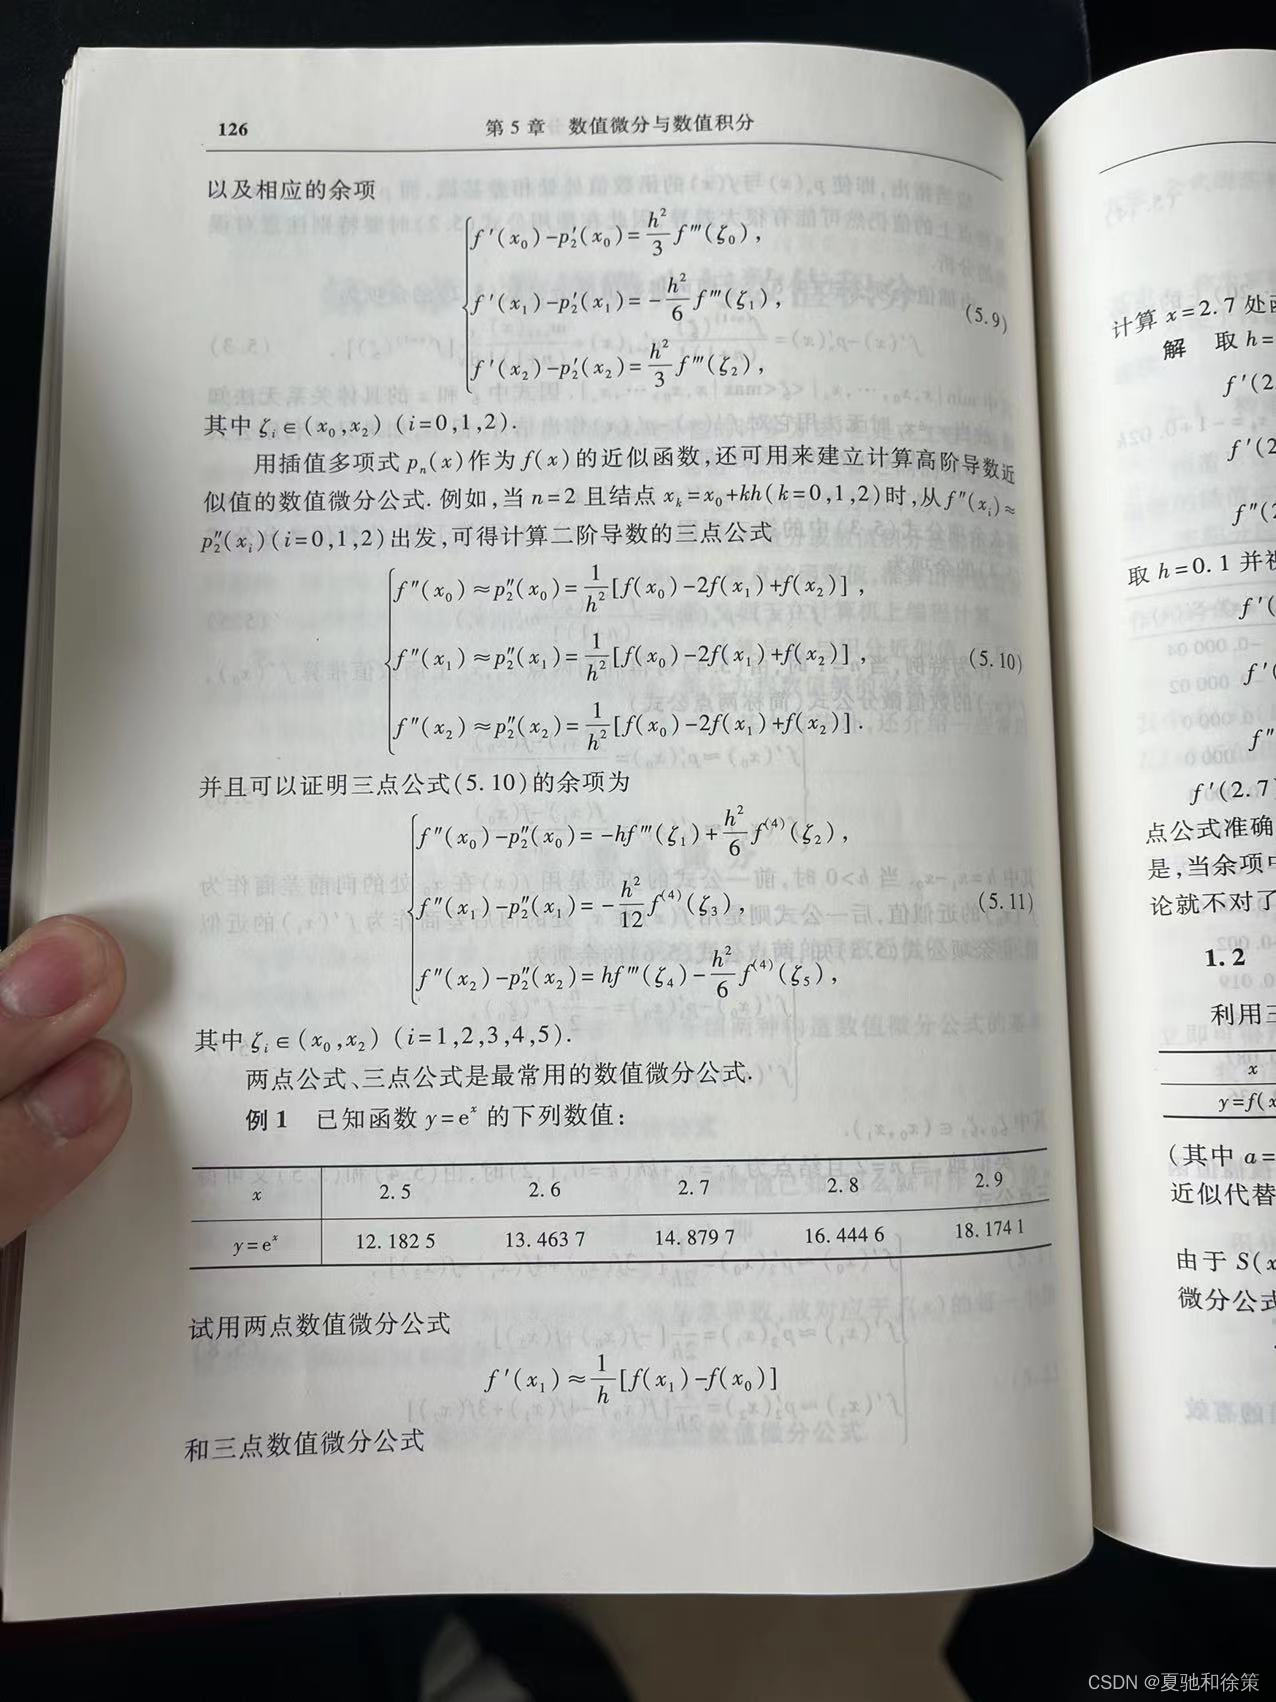 126 第5章 数值微分与数值积分
以及相应的余项
f′(x₀)-p₂′(x₀)=h²/3 f‴(ζ₀),
f′(x₁)-p₂′(x₁)=-h²/6 f‴(ζ₁), (5.9)
f′(x₂)-p₂′(x₂)=h²/3 f‴(ζ₂),
其中 ζᵢ∈(x₀,x₂) (i=0,1,2).
用插值多项式 pₙ(x)作为 f(x)的近似函数,还可用来建立计算高阶导数近
似值的数值微分公式. 例如,当 n=2 且结点 xₖ=x₀+kh(k=0,1,2)时,从 f″(xᵢ)≈
p₂″(xᵢ)(i=0,1,2)出发,可得计算二阶导数的三点公式
f″(x₀)≈p₂″(x₀)=1/h²[f(x₀)-2f(x₁)+f(x₂)],
f″(x₁)≈p₂″(x₁)=1/h²[f(x₀)-2f(x₁)+f(x₂)], (5.10)
f″(x₂)≈p₂″(x₂)=1/h²[f(x₀)-2f(x₁)+f(x₂)].
并且可以证明三点公式(5.10)的余项为
f″(x₀)-p₂″(x₀)=-hf‴(ζ₁)+h²/6 f⁽⁴⁾(ζ₂),
f″(x₁)-p₂″(x₁)=-h²/12 f⁽⁴⁾(ζ₃), (5.11)
f″(x₂)-p₂″(x₂)=hf‴(ζ₄)-h²/6 f⁽⁴⁾(ζ₅),
其中 ζᵢ∈(x₀,x₂) (i=1,2,3,4,5).
两点公式、三点公式是最常用的数值微分公式.
例1 已知函数 y=eˣ 的下列数值:
x 2.5 2.6 2.7 2.8 2.9
y=eˣ 12.182 5 13.463 7 14.879 7 16.444 6 18.174 1
试用两点数值微分公式
f′(x₁)≈1/h[f(x₁)-f(x₀)]
和三点数值微分公式
计算 x=2.7 处
解 取 h=
f′(2
f′(2
f″(2
取 h=0.1 并
f′(
f′(
f″
f′(2.7
点公式准确
是,当余项中
论就不对了
1.2
利用三
x
y=f(x
(其中 a=
近似代替
由于 S(x
微分公式
CSDN @夏驰和徐策